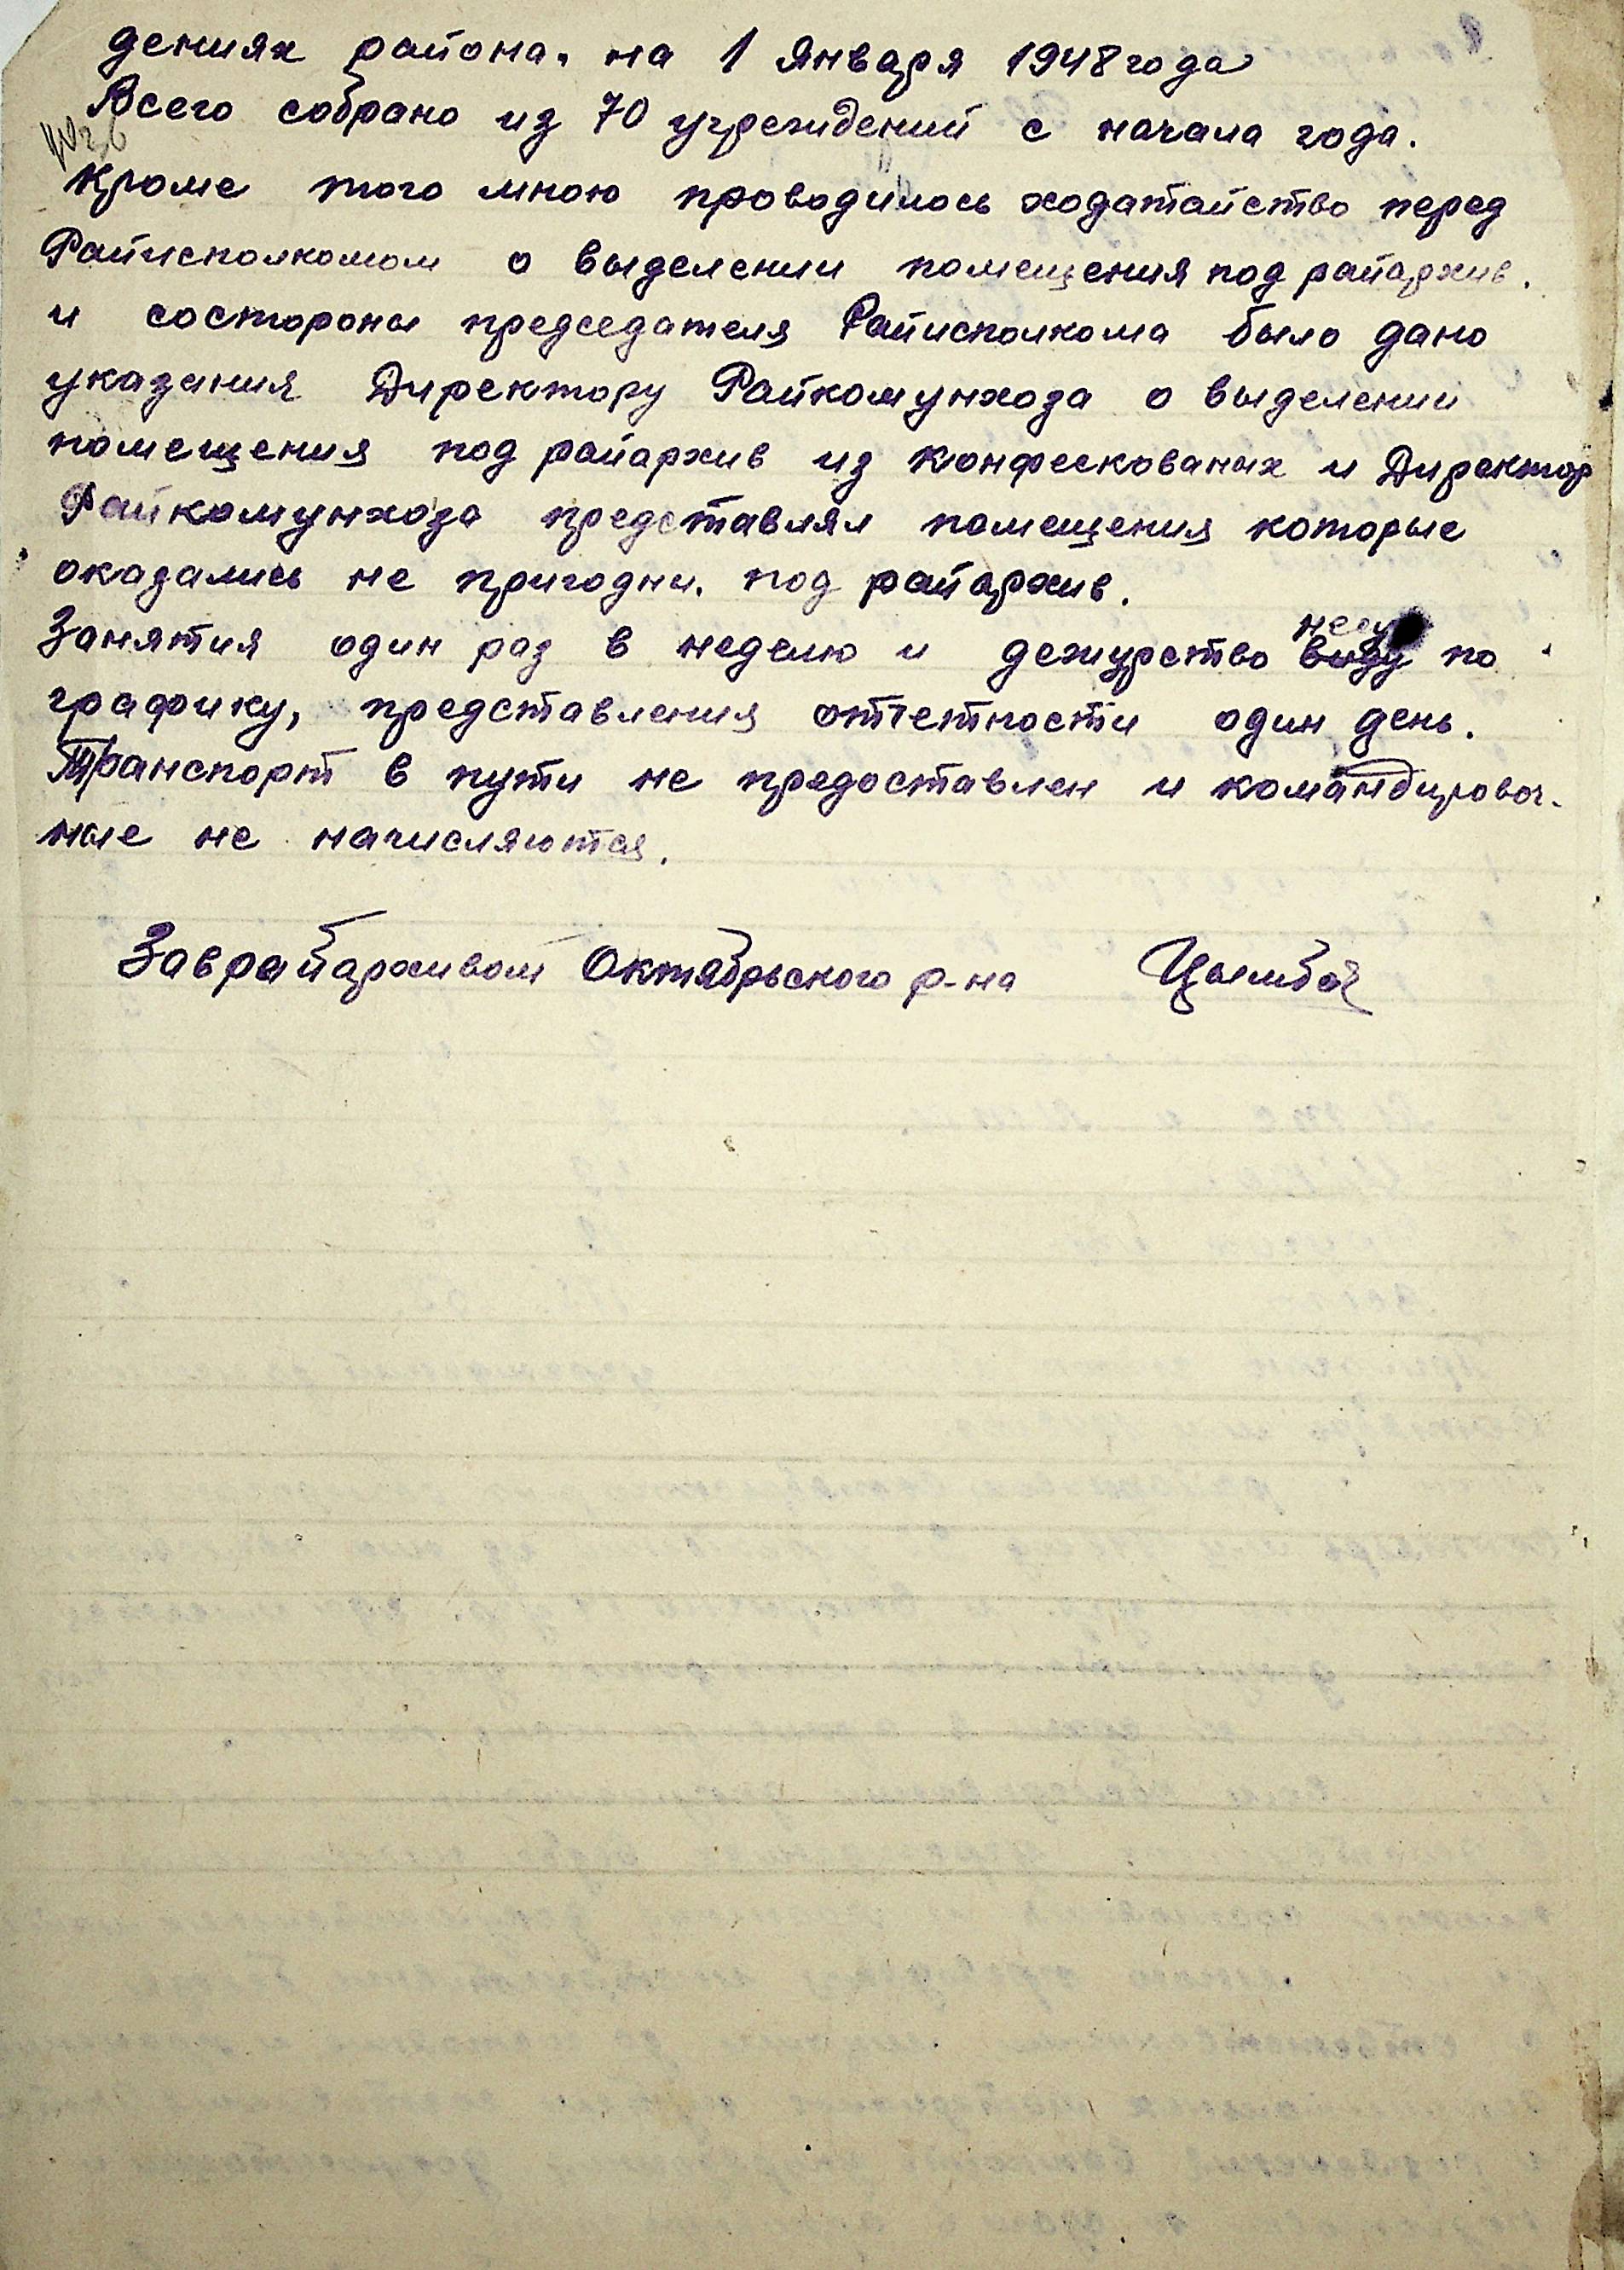 дениях района. на 1 января 1948 года
Всего собрано из 70 учреждений с начала года.
Кроме того мною проводилось ходатайство перед
Райисполкомом о выделении помещения под райархив.
и состороны председателя Райисполкома было дано
указания Директору Райкомунхоза о выделении
помещения под райархив из конфескованых и Директор
Райкомунхоза представлял помещения которые
оказались не пригодни. под райархив.
Занятия один раз в неделю и дежурство несу по
графику, представления отчетности один день.
Транспорт в пути не предоставлен и командировоч-
ные не начисляются.
Заврайархивом Октябрьского р-на Цымбал